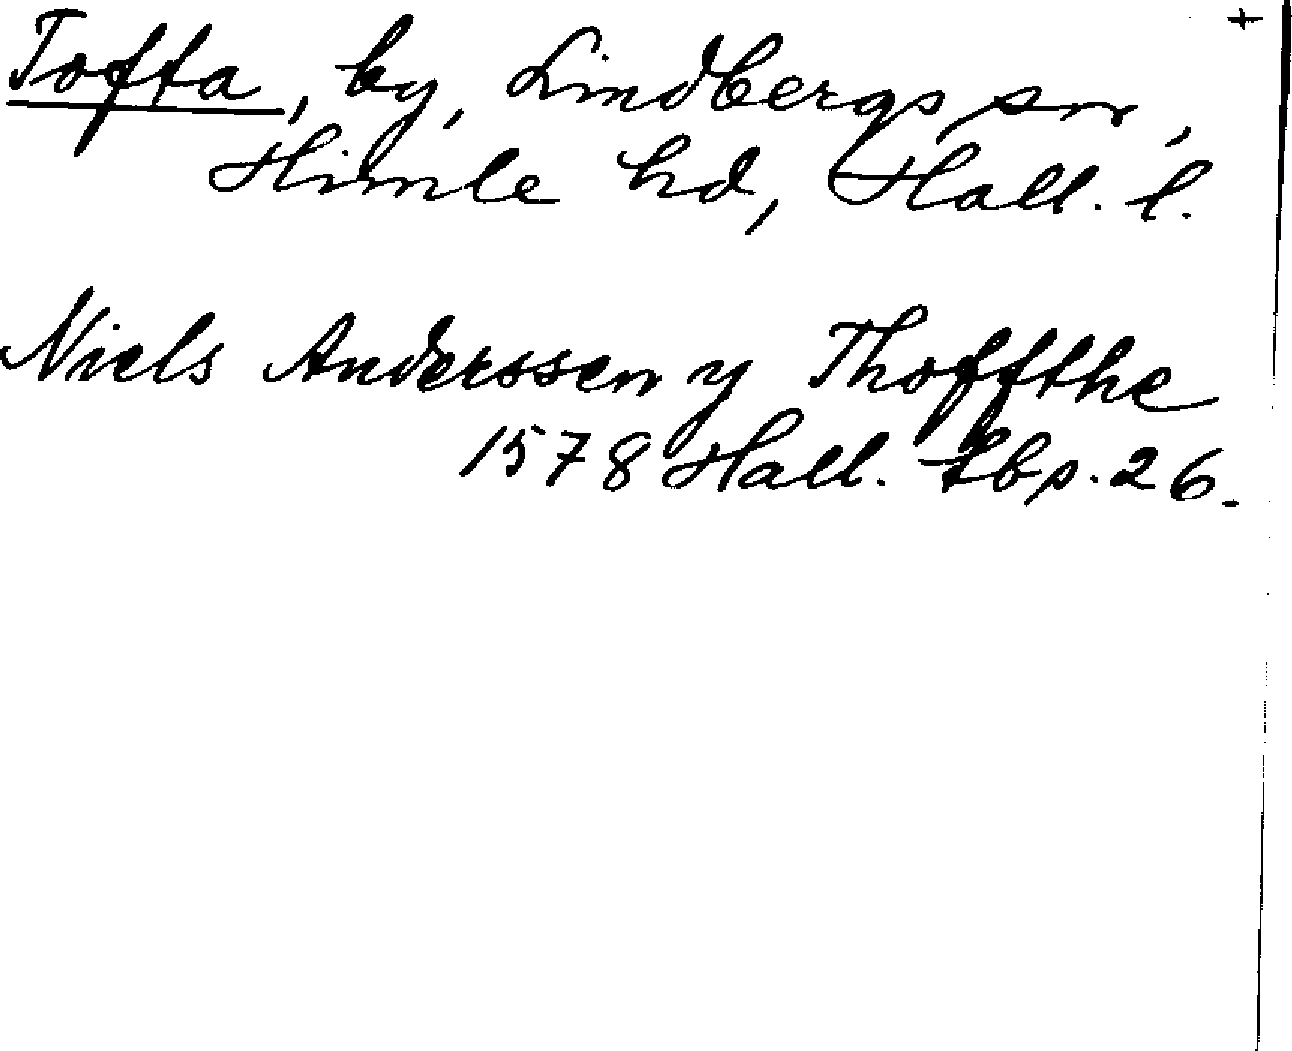 +
Tofta, by, Lindbergs sn,
Himle hd, Hall. l.
Niels Anderssen y Thoffthe
1578 Hall. tbs. 26.